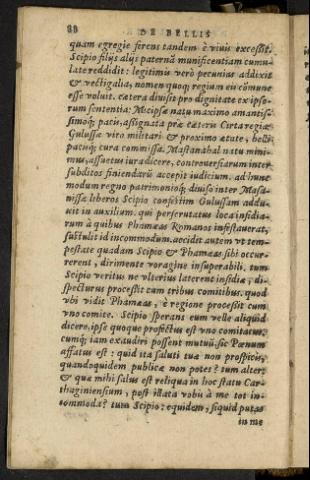 88
DE BELLIS
quam egregie ferens tandem è viuis excessit.
Scipio filijs alijs paternā munificentiam cumu-
late reddidit: legitimis verò pecunias addixit
& vectigalia, nomen quoq; regium eis cōmune
esse voluit. cætera diuisit pro dignitate ex ipso-
rum sententia: Micipsæ natu maximo amantis-
simoq; pacis, assignata præ cæteris Cirta regia:
Gulussæ viro militari & proximo ætate, belli
pacisq; cura commissa. Mastanabal natu mini-
mus, assuetus iura dicere, controuersiarum inter
subditos finiendarū accepit iudicium. ad hunc
modum regno patrimonioq; diuiso inter Masa-
nissæ liberos Scipio confestim Gulussam addu-
xit in auxilium. qui perscrutatus loca insidia-
rum à quibus Phameas Romanos infestauerat,
sustulit id incommodum. accidit autem vt tem-
pestate quadam Scipio & Phameas sibi occur-
rerent, dirimente voragine insuperabili. tum
Scipio veritus ne vlterius laterent insidiæ, di-
specturus processit cum tribus comitibus. quod
vbi vidit Phameas, è regione processit cum
vno comite. Scipio sperans eum velle aliquid
dicere, ipse quoque profectus est vno comitatus.
cumq; iam exaudiri possent mutuū, sic Pœnum
affatus est: quid ita saluti tuæ non prospicis,
quandoquidem publicæ non potes? tum alter:
& quæ mihi salus est reliqua in hoc statu Car-
thaginiensium, post illata vobis à me tot in-
commoda? tum Scipio: equidem, siquid putas
in me